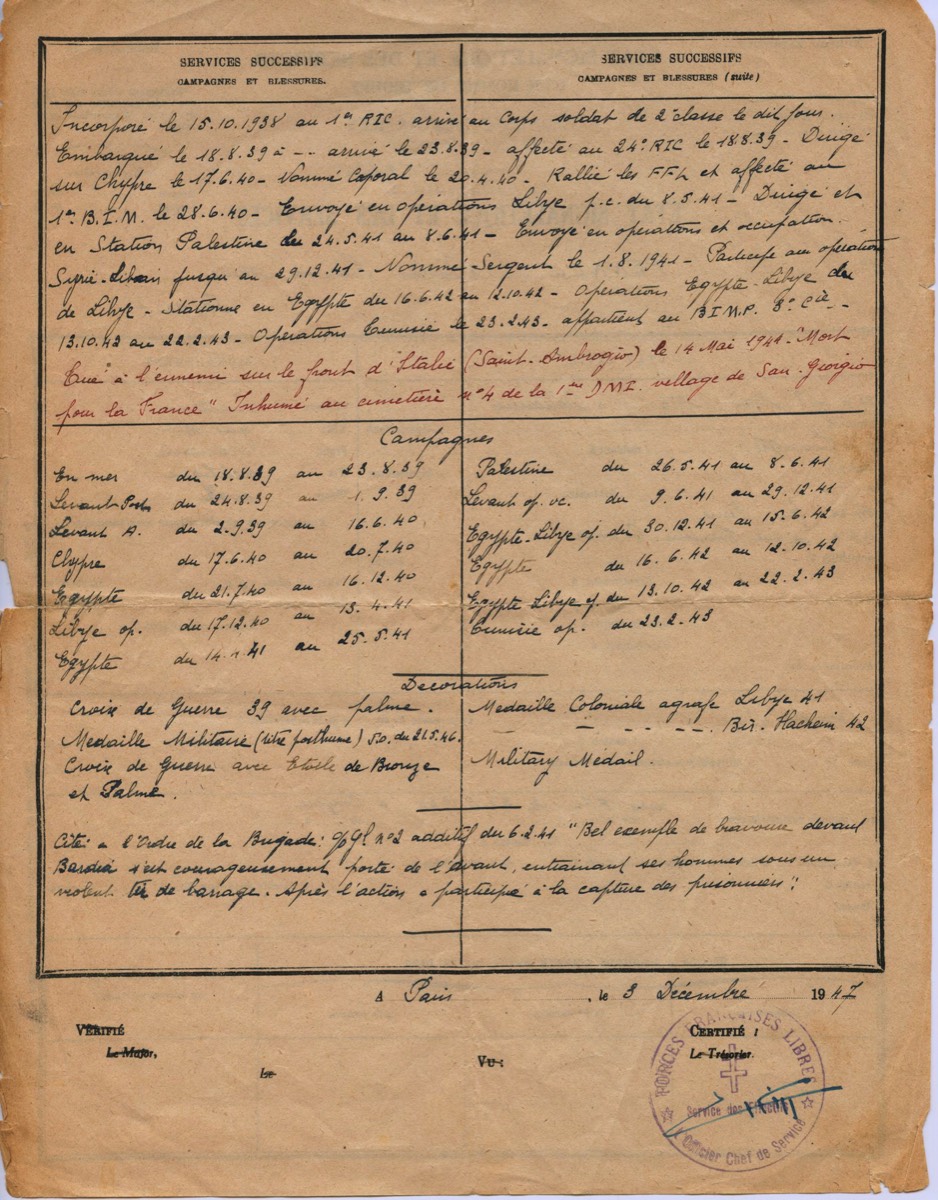 SERVICES SUCCESSIFS
CAMPAGNES ET BLESSURES.
SERVICES SUCCESSIFS
CAMPAGNES ET BLESSURES (suite)
Incorporé le 15.10.1938 au 1er RIC. arrivé au Corps soldat de 2e classe le dit jour.
Embarqué le 18.8.39 à -- arrivé le 23.8.39 - affecté au 24e RIC le 18.8.39 - Dirigé
sur Chypre le 17.6.40 - Nommé Caporal le 20.4.40 - Rallié les FFL et affecté au
1er B.I.M. le 28.6.40 - Envoyé en opérations Libye p.c. du 8.5.41 - Dirigé et
en Station Palestine du 24.5.41 au 8.6.41 - Envoyé en opérations et occupation.
Syrie-Liban jusqu'au 29.12.41 - Nommé Sergent le 1.8.1941 - Participe aux opérations
de Libye - Stationne en Egypte du 16.6.42 au 12.10.42 - Opérations Egypte-Libye du
13.10.42 au 22.2.43 - Opérations Tunisie le 23.2.43 - appartient au B.I.M.P. 8e Cie --
Tué à l'ennemi sur le front d'Italie (Saint-Ambrogio) le 14 Mai 1944 - "Mort
pour la France" Inhumé au cimetière n°4 de la 1ère DMI. village de San-Giorgio
Campagnes
En mer du 18.8.39 au 23.8.39
Levant du 24.8.39 au 1.9.39
Levant A. du 2.9.39 au 16.6.40
Chypre du 17.6.40 au 20.7.40
Egypte du 21.7.40 au 16.12.40
Libye op. du 17.12.40 au 13.4.41
Egypte du 14.4.41 au 25.5.41
Palestine du 26.5.41 au 8.6.41
Levant op. vc. du 9.6.41 au 29.12.41
Egypte-Libye op. du 30.12.41 au 15.6.42
Egypte du 16.6.42 au 12.10.42
Egypte Libye op. du 13.10.42 au 22.2.43
Tunisie op. du 23.2.43
Décorations
Croix de Guerre 39 avec palme.
Medaille Militaire (titre posthume) S.O. du 21.5.46.
Croix de Guerre avec Etoile de Bronze
et Palme.
Medaille Coloniale agrafe Libye 41
— — -- --. Bir-Hacheim 42
Military Médail.
Cité à l'Ordre de la Brigade: O/Gl n°2 additif du 6.2.41 "Bel exemple de bravoure devant
Bardia s'est courageusement porté de l'avant, entrainant ses hommes sous un
violent tir de barrage. Après l'action a participé à la capture des prisonniers".
A Paris, le 3 Décembre 1947
VÉRIFIÉ
Le Major,
Le
VU :
CERTIFIÉ :
Le Trésorier.
FORCES FRANÇAISES LIBRES
Service des Effectifs
L'Officier Chef de Service